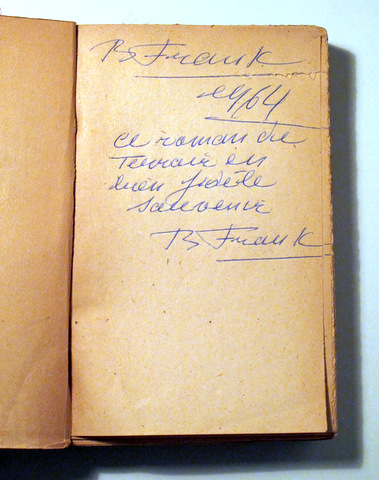 B Frank
1964
ce roman du
Terroir en
bien fidèle
souvenir
B Frank